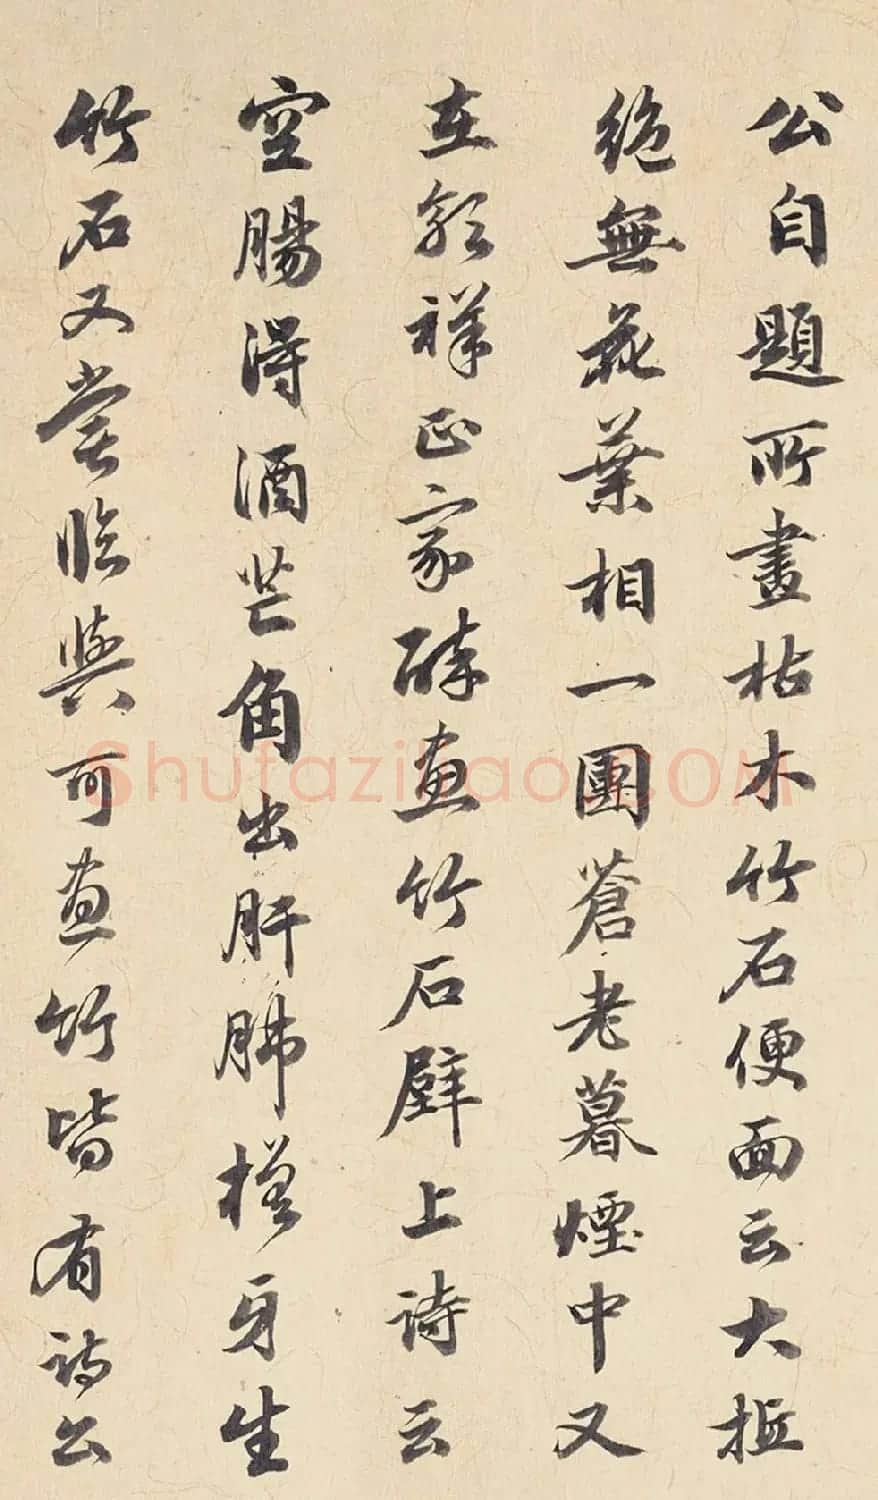 公自題所畫枯木竹石便面云大抵
絶無花葉相一團蒼老暮煙中又
在郭祥正家醉畫竹石壁上詩云
空腸得酒芒角出肝肺槎牙生
竹石又嘗臨與可畫竹皆有詩公
Shufaziliao.COM